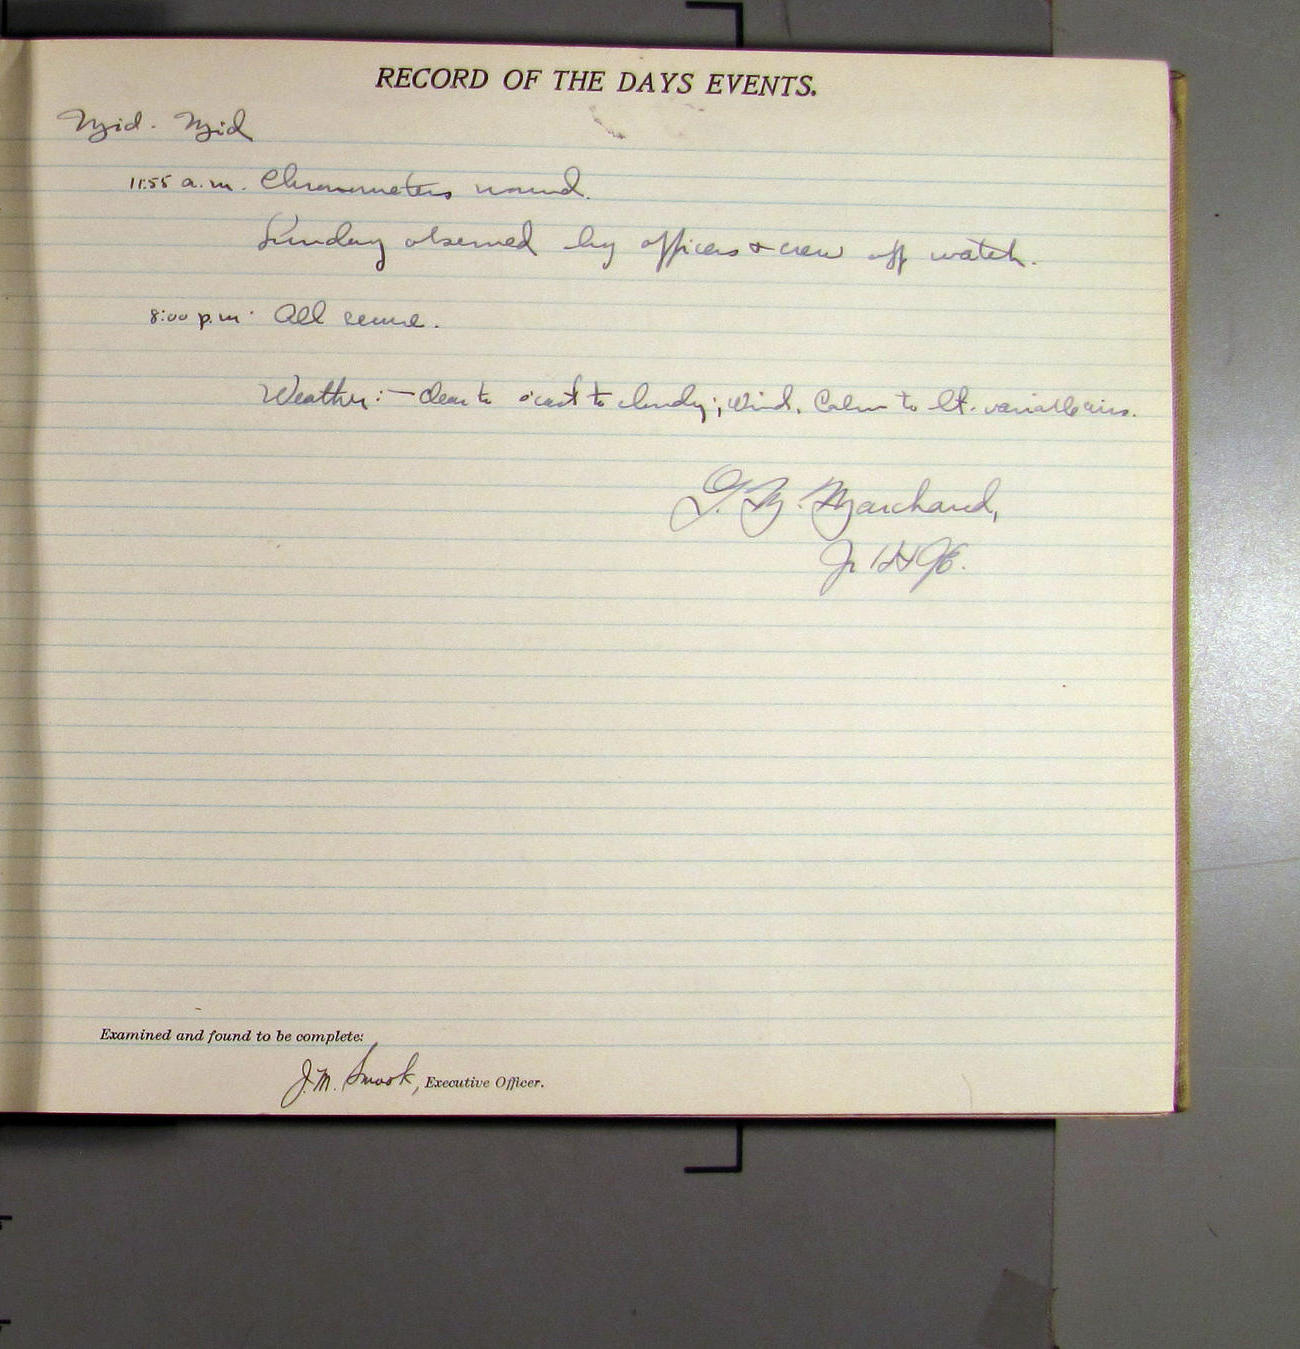 RECORD OF THE DAYS EVENTS.
Mid - Mid
11:55 a.m. Chronometers wound.
Sunday observed by officers & crew off watch.
8:00 p.m. All secure.
Weather:- Clear to o'cast to cloudy; Wind, Calm to lt. variable airs.
G. M. Marchand,
Jr. H&GE.
Examined and found to be complete:
J.M. Smook, Executive Officer.